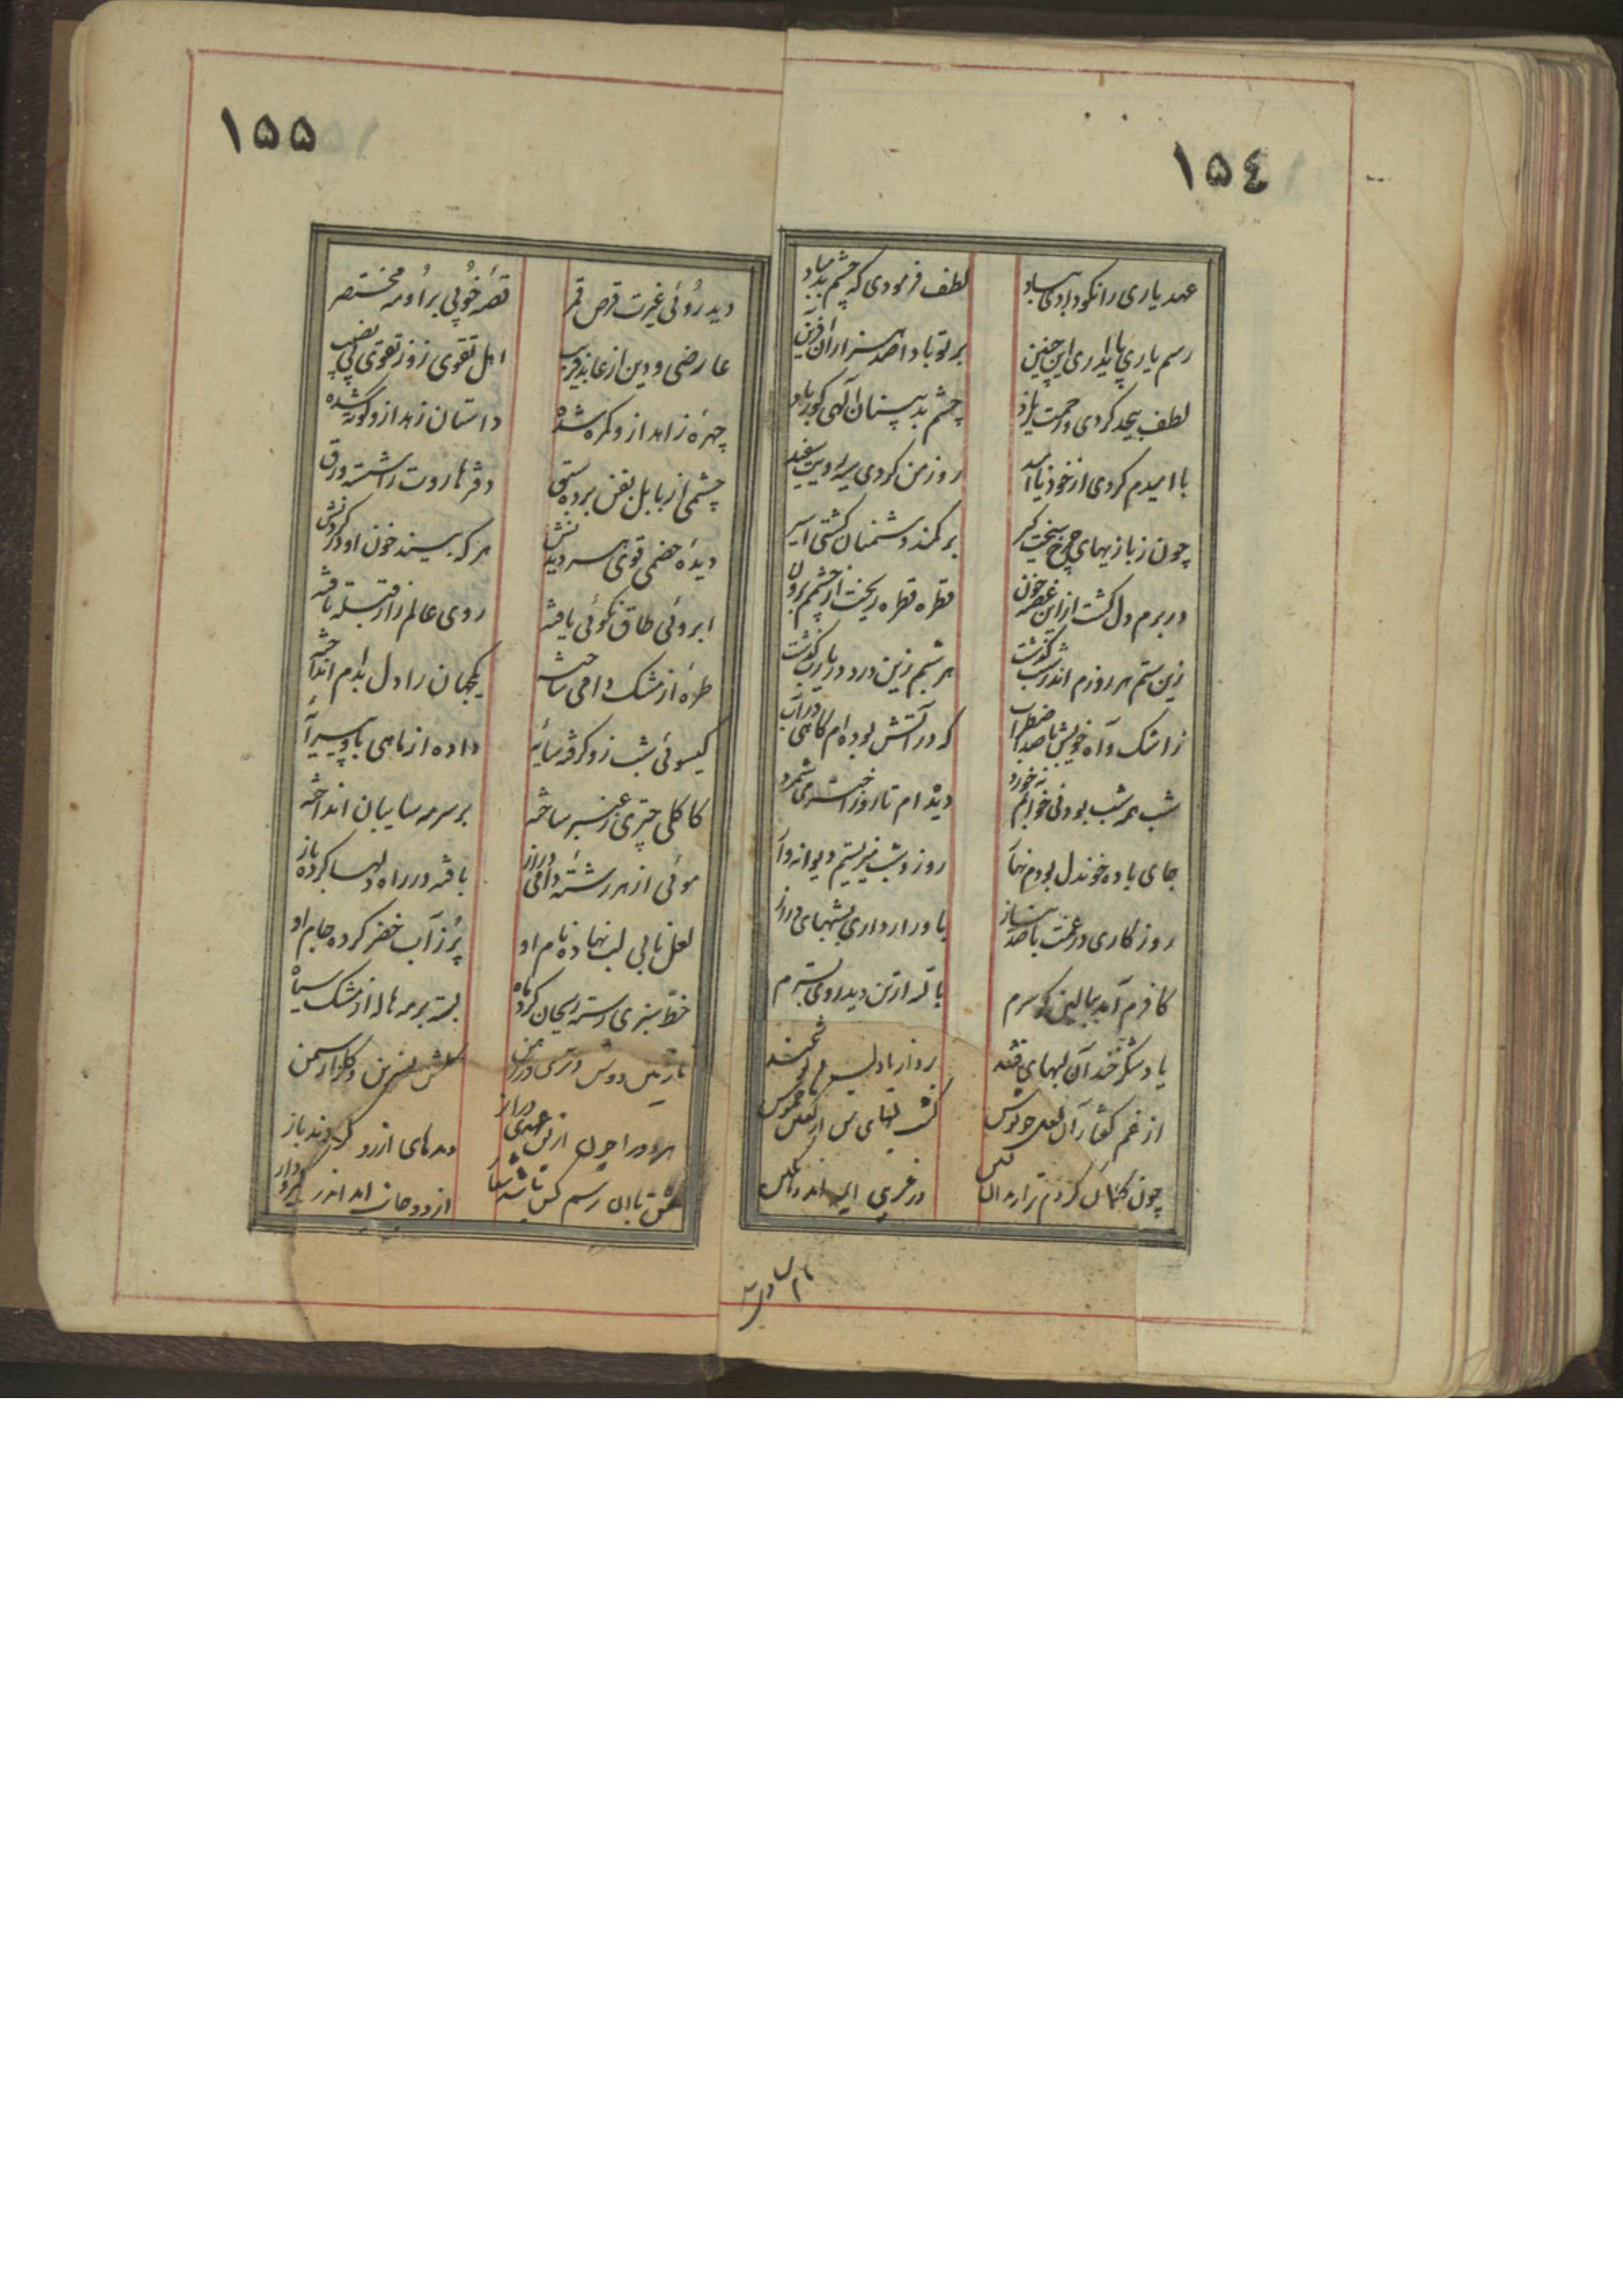 ۱۵٤
عهد یاری را نکو دادی بباد لطف فرمودی که چشم بد مباد
رسم یاری پایداری این چنین بر تو بادا صد هزاران آفرین
لطف بیحد کردی و رحمت زیاد چشم بد بینان الهی کور باد
با امیدم کردی از خود ناامید روز من کردی سیه رویت سفید
چون ز بازیهای چرخ سخت گیر بر کمند دشمنان گشتی اسیر
در برم دل گشت از این غصه خون قطره قطره ریخت از چشمم برون
زین ستم هر روزم اندر تب گذشت هر شبم زین درد در یارب گذشت
ز اشک و آه خویش با صد اضطراب که در آتش بوده ام گاهی در آب
شب همه شب بود نی خوابم نه خورد دیده ام تا روز اختر می شمرد
جای باده خوندل بودم نهار روز و شب میزیستم دیوانه وار
روزگاری در غمت با صد نیاز یاور ار داری بشبهای دراز
کافرم آمد ببالین گر سرم یا که از تن دید روی بسترم
یاد شکر خند آن لبهای قند
از غم گفتار آن لعل خموش گشت لبهای من از گفتن خموش
چون گمان کردم ترا در غریبی
۱۵۵
دید روئی غیرت قرص قمر قصهٔ خوبی بر او مه مختصر
عارضی و دین از عابد فریب اهل تقوی زو ز تقوی بی نصیب
چهرهٔ زاهد از و گمره شده داستان زهد از و کوته شده
چشمی از بابل بفن برده سبق دفتر هاروت را شسته ورق
دیدهٔ خصمی قوی هر دیدنش هر که بیند خون او در گردنش
ابروئی طاق نکوئی یافته روی عالم را ز قبله تافته
طرهٔ از مشک دامی ساخته یکجهان را دل بدام انداخته
گیسوئی شب زو گرفته سایهٔ داده از ماهی باو پیرایهٔ
کاکلی چتری ز عنبر ساخته بر سر مه سایبان انداخته
موئی از هر رشتهٔ دامی دراز بافته در راه دلها کرده باز
لعل نابی لب نهاده نام او پر ز آب خضر کرده جام او
خط سبزی رسته ریحان گرد ماه بسته بر مه هاله از مشک سیاه
نسرین و گلزار سمن